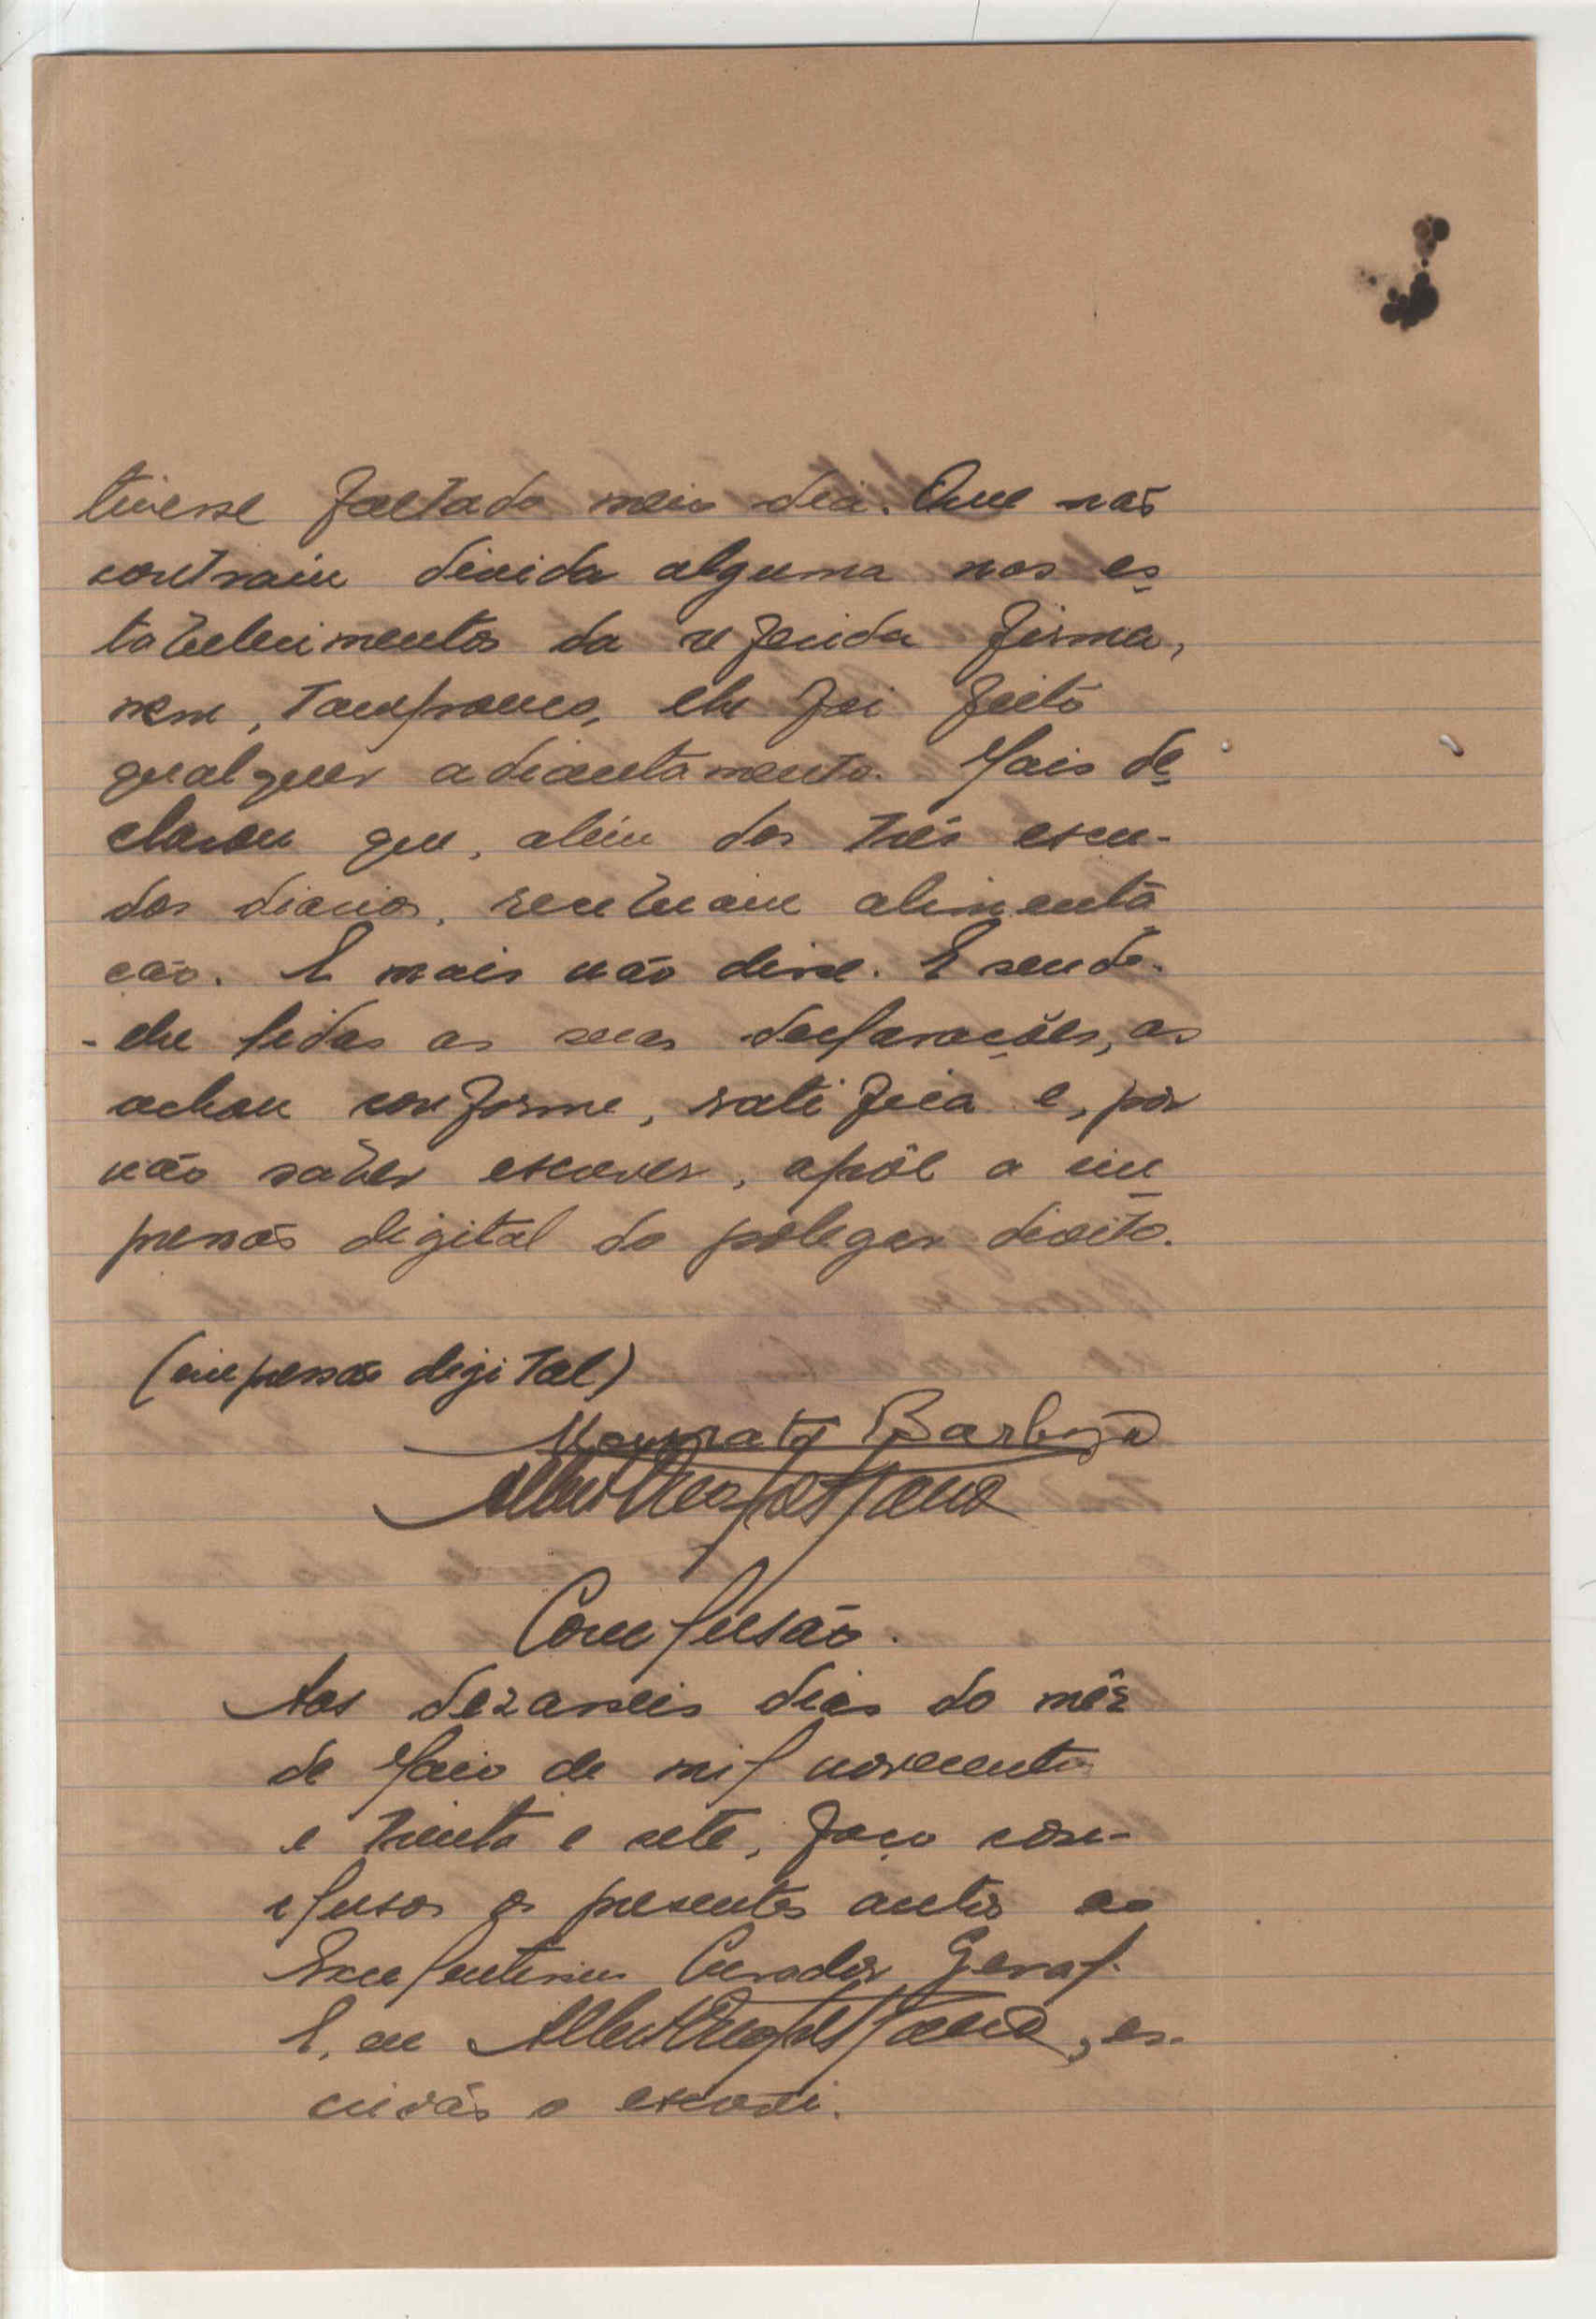 tivesse faltado meio dia. Que não
contraiu divida alguma nos es
tabelecimentos da referida firma,
nem, tampouco, lhe foi feito
qualquer adiantamento. Mais de
clarou que, além dos três escu-
dos diarios, recebiam alimenta
ção. E mais não disse. E sendo-
-lhe lidas as suas declarações, as
achou conforme, ratifica e, por
não saber escrever, apôe a im
pressão digital do polegar direito.
(impressão digital)
Barbosa
Conclusão.
Aos dezasseis dias do mês
de Maio de mil novecentos
e trinta e sete, faço con-
clusos os presentes autos ao
Excelentissimo Curador Geral.
E, eu , es-
crivão o escrevi.